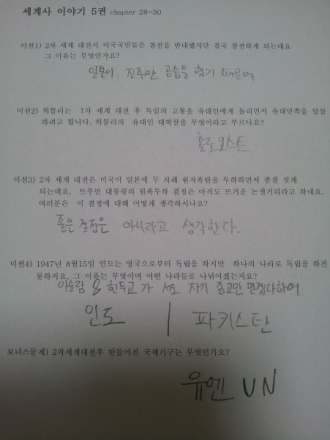 세계사 이야기 5권 chapter 28-30
미션1) 2차 세계 대전시 미국국민들은 참전을 반대했지만 결국 참전하게 되는데요
그 이유는 무엇인가요?
일본이 진주만 공습을 했기 때문에
미션2) 히틀러는 1차 세계 대전 후 독일의 고통을 유대인에게 돌리면서 유대민족을 말살
하려고 합니다. 히틀러의 유대인 대학살을 무엇이라고 부르나요?
홀로코스트
미션3) 2차 세계 대전은 미국이 일본에 두 차례 원자폭탄을 투하하면서 종결 짓게
되는데요. 트루먼 대통령의 원폭투하 결정은 아직도 뜨거운 논쟁거리라고 하네요.
여러분은 이 결정에 대해 어떻게 생각하시나요?
좋은 결정은 아니라고 생각한다.
미션4) 1947년 8월15일 인도는 영국으로부터 독립을 하지만 하나의 나라로 독립을 하진
못하지요. 그 이유는 무엇이며 어떤 나라들로 나뉘어졌는지요?
이슬람 & 힌두교가 서로 자기 종교만 믿겠다하여
인도 | 파키스탄
보너스문제) 2차세계대전후 만들어진 국제기구는 무엇인가요?
유엔 UN